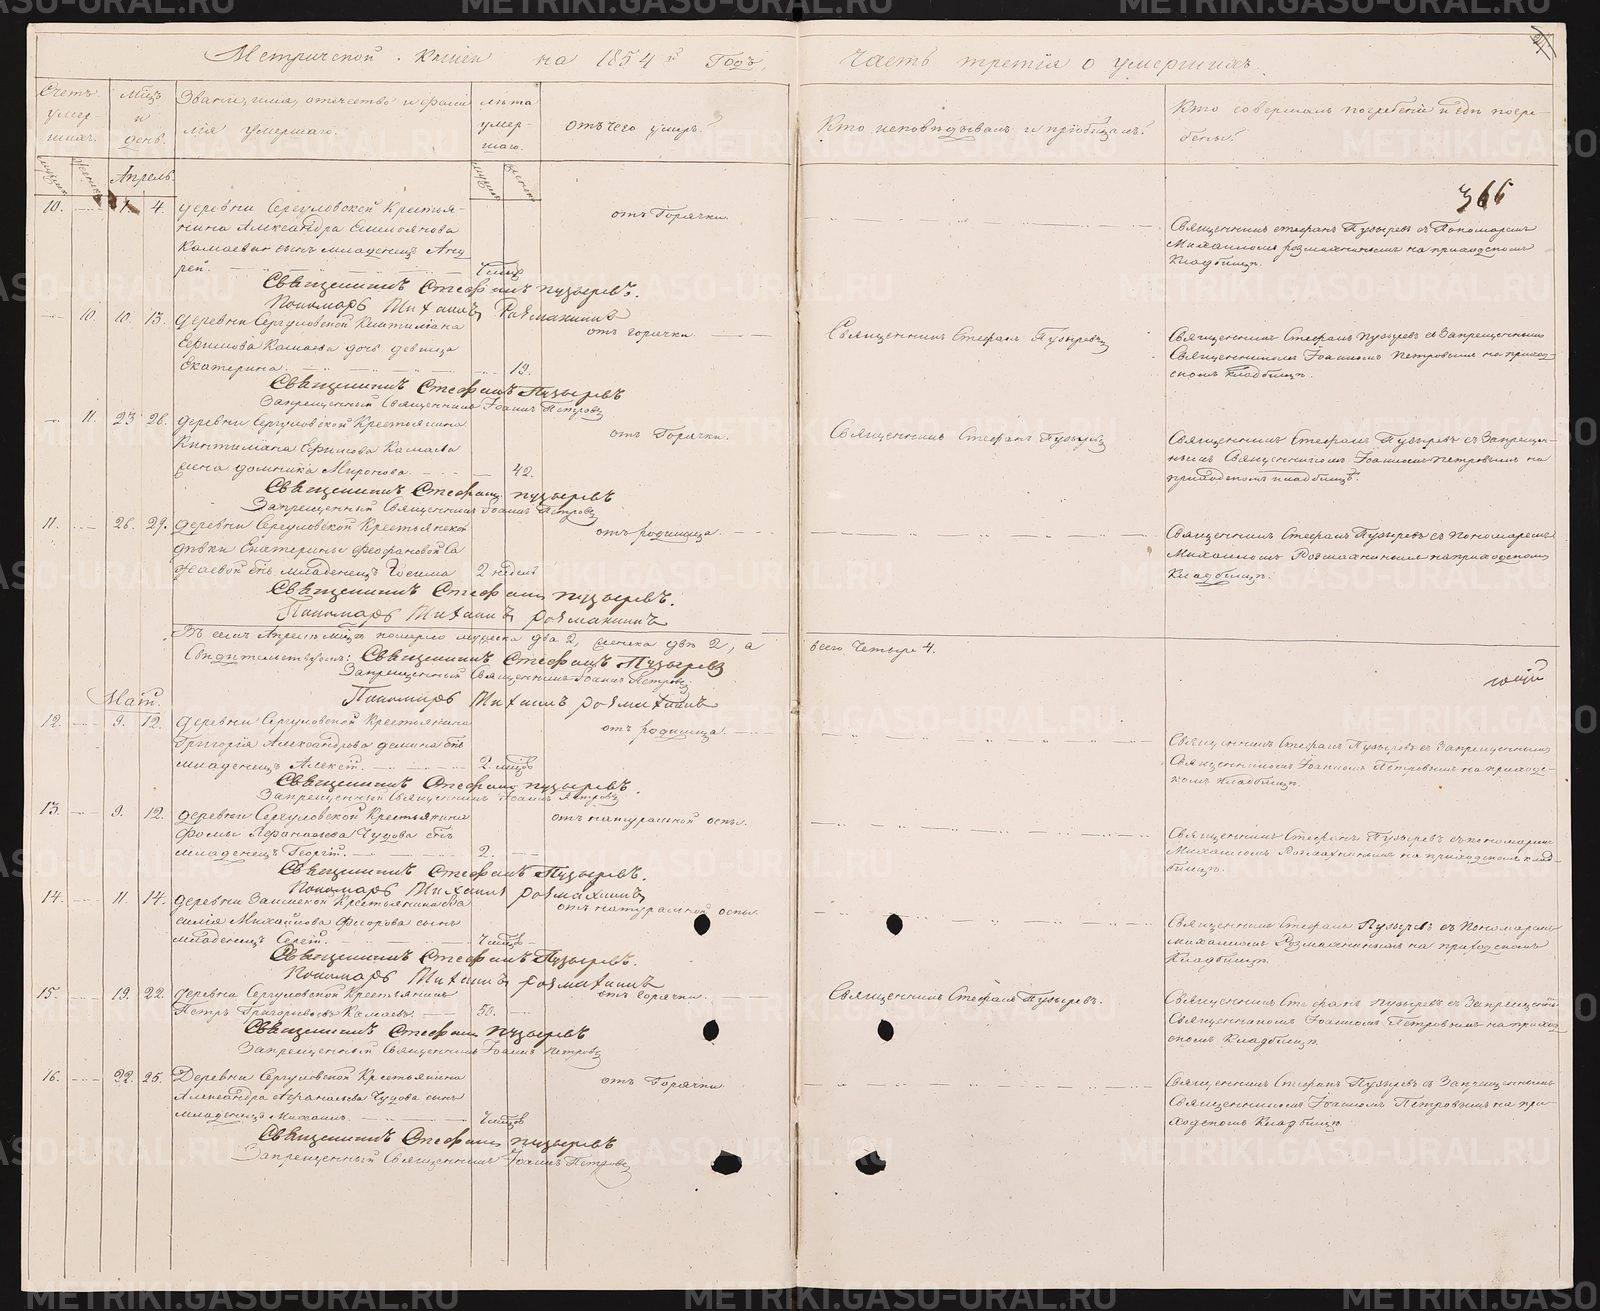 Метрической Книги на 1854й Годъ,
Часть третія о умершихъ
Счетъ умер-шихъ.
Мѣц. и день.
Званіе, имя, отечество и фами-
лія умершаго.
лѣта умер-шаго.
Отъ чего умеръ?
Кто исповѣдывалъ и пріобщалъ?
Кто совершалъ погребеніе и гдѣ погре-
бены?
Апрель.
366
10. 1. 4. деревни Сергуловской Крестья-
нина Александра Емельянова
Камаева сынъ младенецъ Анд-
рей.
отъ Горячки.
Священникъ Стефанъ Пузыревъ съ Пономаремъ
Михаиломъ Розмахнинымъ на приходскомъ
Кладбищѣ.
Священникъ Стефанъ Пузыревъ.
Пономарь Михаилъ Розмахнинъ
10. 10. 13. деревни Сергуловской
Ефимова Камаева дочь девица
Екатерина. 19.
отъ горячки.
Священникъ Стефанъ Пузыревъ
Священникъ Стефанъ Пузыревъ съ Запрещеннымъ
Священникомъ Іоанномъ Петровымъ на приход-
скомъ Кладбищѣ.
Священникъ Стефанъ Пузыревъ
Запрещенный Священникъ Іоаннъ Петровъ
11. 23 26. деревни Сергуловской Крестьянина
Ефимова Камаева
жена Миронова. 42.
отъ Горячки.
Священникъ Стефанъ Пузыревъ
Священникъ Стефанъ Пузыревъ съ Запрещен-
нымъ Священникомъ Іоанномъ Петровымъ на
приходскомъ кладбищѣ.
Священникъ Стефанъ Пузыревъ
Запрещенный Священникъ Іоаннъ Петровъ
11. 26. 29. деревни Сергуловской Крестьянской
дѣвки Екатерины Феофановой
младенецъ 2 недель
отъ родимца.
Священникъ Стефанъ Пузыревъ съ пономаремъ
Михаиломъ Розмахнинымъ на приходскомъ
Кладбищѣ.
Священникъ Стефанъ Пузыревъ.
Пономарь Михаилъ Розмахнинъ
Въ семъ Апрелѣ мѣцѣ померло мужеска два 2, женска двѣ 2, а
всего Четыре 4.
Свидѣтельствуемъ: Священникъ Стефанъ Пузыревъ
Запрещенный Священникъ Іоаннъ Петровъ
Пономарь Михаилъ Розмахнинъ
Май.
12. 9. 12. деревни Сергуловской Крестьянина
Григорія Александрова сынъ
младенецъ Алексѣй. 2. мѣцовъ
отъ родимца.
Священникъ Стефанъ Пузыревъ съ Запрещеннымъ
Священникомъ Іоанномъ Петровымъ на приходс-
комъ Кладбищѣ.
Священникъ Стефанъ Пузыревъ.
Запрещенный Священникъ Іоаннъ Петровъ
13. 9. 12. деревни Сергуловской Крестьянина
Фомы Афанасьева Чудова сынъ
младенецъ Георгій. 2.
отъ натуральной оспы.
Священникъ Стефанъ Пузыревъ съ пономаремъ
Михаиломъ Розмахнинымъ на приходскомъ клад-
бищѣ.
Священникъ Стефанъ Пузыревъ.
Пономарь Михаилъ Розмахнинъ
14. 11. 14. деревни Крестьянина Ва-
силія Михайлова Федорова сынъ
младенецъ Сергѣй.
отъ натуральной оспы.
Священникъ Стефанъ Пузыревъ съ Пономаремъ
Михаиломъ Розмахнинымъ на приходскомъ
Кладбищѣ.
Священникъ Стефанъ Пузыревъ.
Пономарь Михаилъ Розмахнинъ
15. 19. 22. деревни Сергуловской Крестьянинъ
Петръ Григорьевъ Камаевъ. 50.
отъ горячки.
Священникъ Стефанъ Пузыревъ.
Священникъ Стефанъ Пузыревъ съ Запрещеннымъ
Священникомъ Іоанномъ Петровымъ на приход-
скомъ Кладбищѣ.
Священникъ Стефанъ Пузыревъ
Запрещенный Священникъ Іоаннъ Петровъ
16. 22. 25. Деревни Сергуловской Крестьянина
Александра Афанасьева Чудова сынъ
младенецъ Михаилъ.
отъ Горячки.
Священникъ Стефанъ Пузыревъ съ Запрещеннымъ
Священникомъ Іоанномъ Петровымъ на при-
ходскомъ Кладбищѣ.
Священникъ Стефанъ Пузыревъ
Запрещенный Священникъ Іоаннъ Петровъ
METRIKI.GASO-URAL.RU